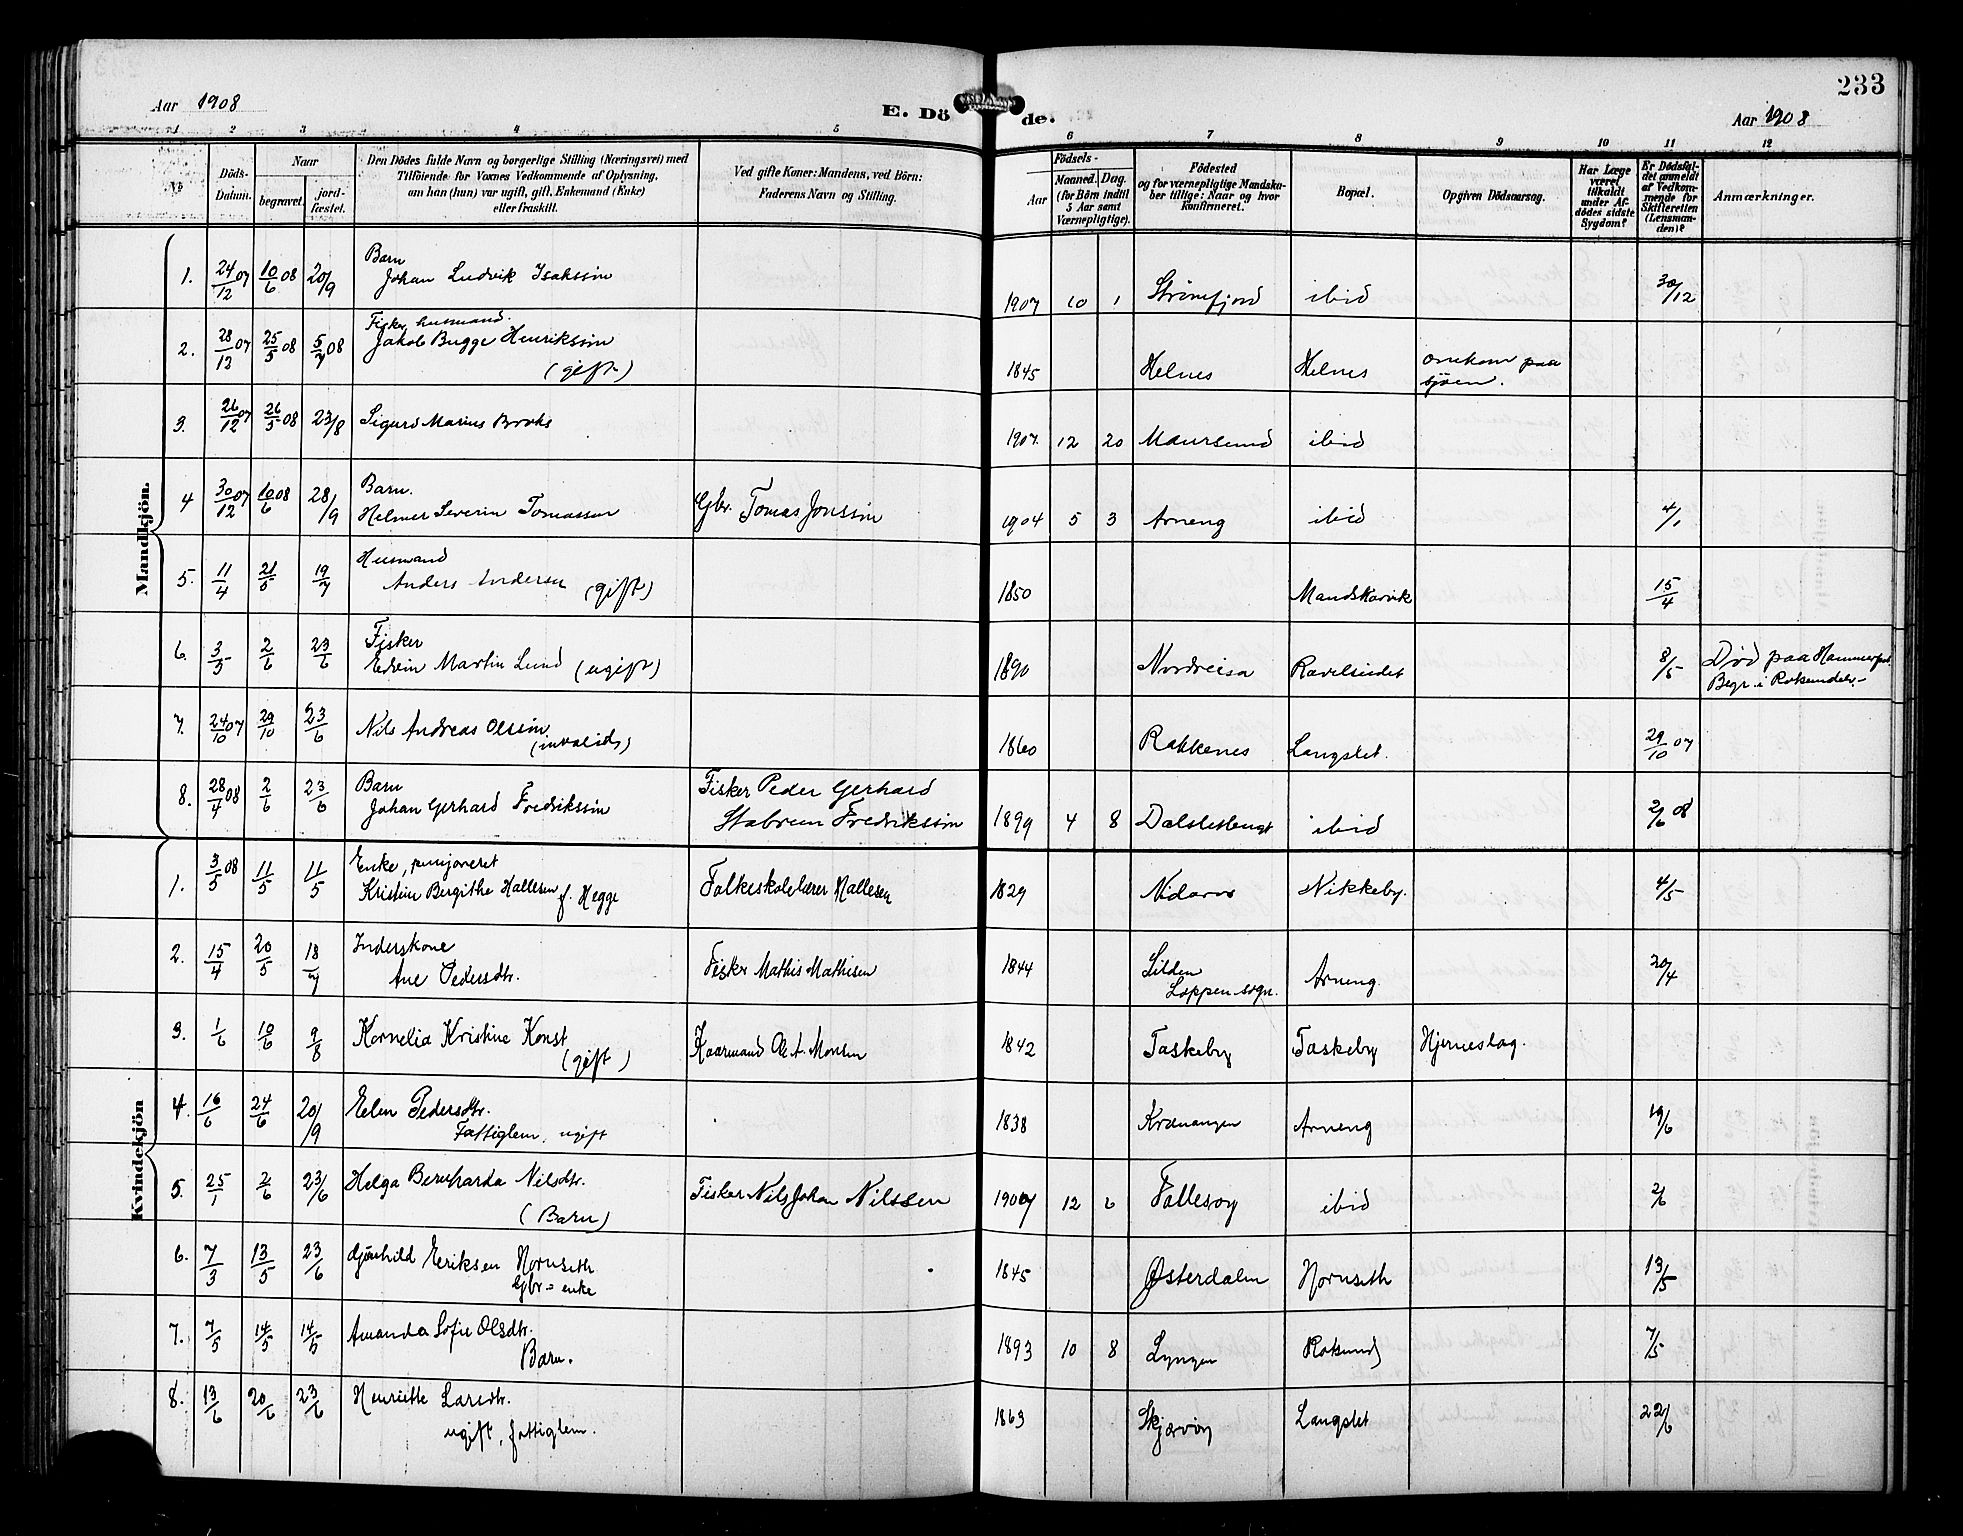 233
Aar 1908
E. Dö de.
Aar 1908
1 2 3 4 5 6 7 8 9 10 11 12
No
Döds-Datum.
Naar
begravet.
jord-fæstet.
Den Dödes fulde Navn og borgerlige Stilling (Næringsvei) med
Tilföiende for Voxnes Vedkommende af Oplysning,
om han (hun) var ugift, gift, Enkemand (Enke)
eller fraskilt.
Ved gifte Koner: Mandens, ved Börn:
Faderens Navn og Stilling.
Födsels-
Aar
Maaned. Dag.
(for Börn indtil
5 Aar samt
Værnepligtige).
Födested
og for værnepligtige Mandska-
ber tillige: Naar og hvor
konfirmeret.
Bopæl.
Opgiven Dödsaarsag.
Har Læge
været
tilkaldt
under Af-
dödes sidste
Sygdom?
Er Dödsfal-
det anmeldt
af Vedkom-
mende for
Skifteretten
(Lensman-
den)?
Anmærkninger.
Mandkjön.
1. 24/12 07 10/6 08 20/9 Barn
Johan Ludvik Isakssøn 1907 10 1 Strømfjord ibid 30/12
2. 28/12 07 25/5 08 5/7 08 Fisker, husmand.
Jakob Bugge Henrikssøn
(gift) 1845 Helnes Helnes omkom paa
sjøen.
3. 26/12 07 26/5 08 23/8 Sigurd Marius Broks 1907. 12 20 Maursund ibid
4 30/12 07 10/6 08 28/9 Barn.
Helmer Severin Tomassen Gbr. Tomas Jonssøn 1904 5 3 Arneng ibid 4/1
5. 11/4 21/5 19/7 Husmand
Anders Andersen (gift) 1850 Mandskarvik 15/4
6. 3/5 2/6 23/6 Fisker
Edvin Martin Lund (ugift) 1890 Nordreisa Ravelseidet 8/5 Død paa Hammerfest
Begr. i Rotsundelv.-
7. 24/10 07 29/10 23/6 Nils Andreas Olssøn.
(invalid) 1860 Rakkenes Langslet. 29/10 07
8. 28/4 08 2/6 23/6 Barn
Johan Gerhard Fredrikssøn Fisker Peder Gerhard
Stabrun Fredrikssøn 1899 4 8 Dalsletbugt ibid 2/6 08
Kvindekjön
1. 3/5 08 11/5 11/5 Enke, pensjoneret
Kristine Bergithe Hallesen f. Hegge Folkeskolelærer Hallesen 1829 Nidaros Nikkeby. 4/5
2. 15/4 20/5 18/7 Inderskone
Ane Pedersdtr. Fisker Mathis Mathisen 1844 Silden
Loppen sogn. Arneng. 20/4
3. 1/6 10/6 9/8 Kornelia Kristine Konst
(gift) Kaarmand Ole A. Monsen 1842 Taskeby Taskeby Hjerneslag.
4. 16/6 24/6 20/9 Elen Pedersdtr.
Fattiglem, ugift 1838 Kvænangen Arneng 19/6
5. 25/1 2/6 23/6 Helga Bernharda Nilsdtr.
(Barn) Fisker Nils Johan Nilssen 1907 12 6 Follesøy ibid 2/6
6. 7/3 13/5 23/6 Gjønhild Eriksen Hornseth
Gbr.= enke 1845 Østerdalen Hornseth 13/5
7. 7/5 14/5 14/5 Amanda Sofie Olsdtr.
Barn. 1893 10 8 Lyngen Rotsund 7/5
8. 13/6 20/6 23/6 Henriette Larsdtr.
ugift, fattiglem. 1863 Skjærvøy Langslet 22/6